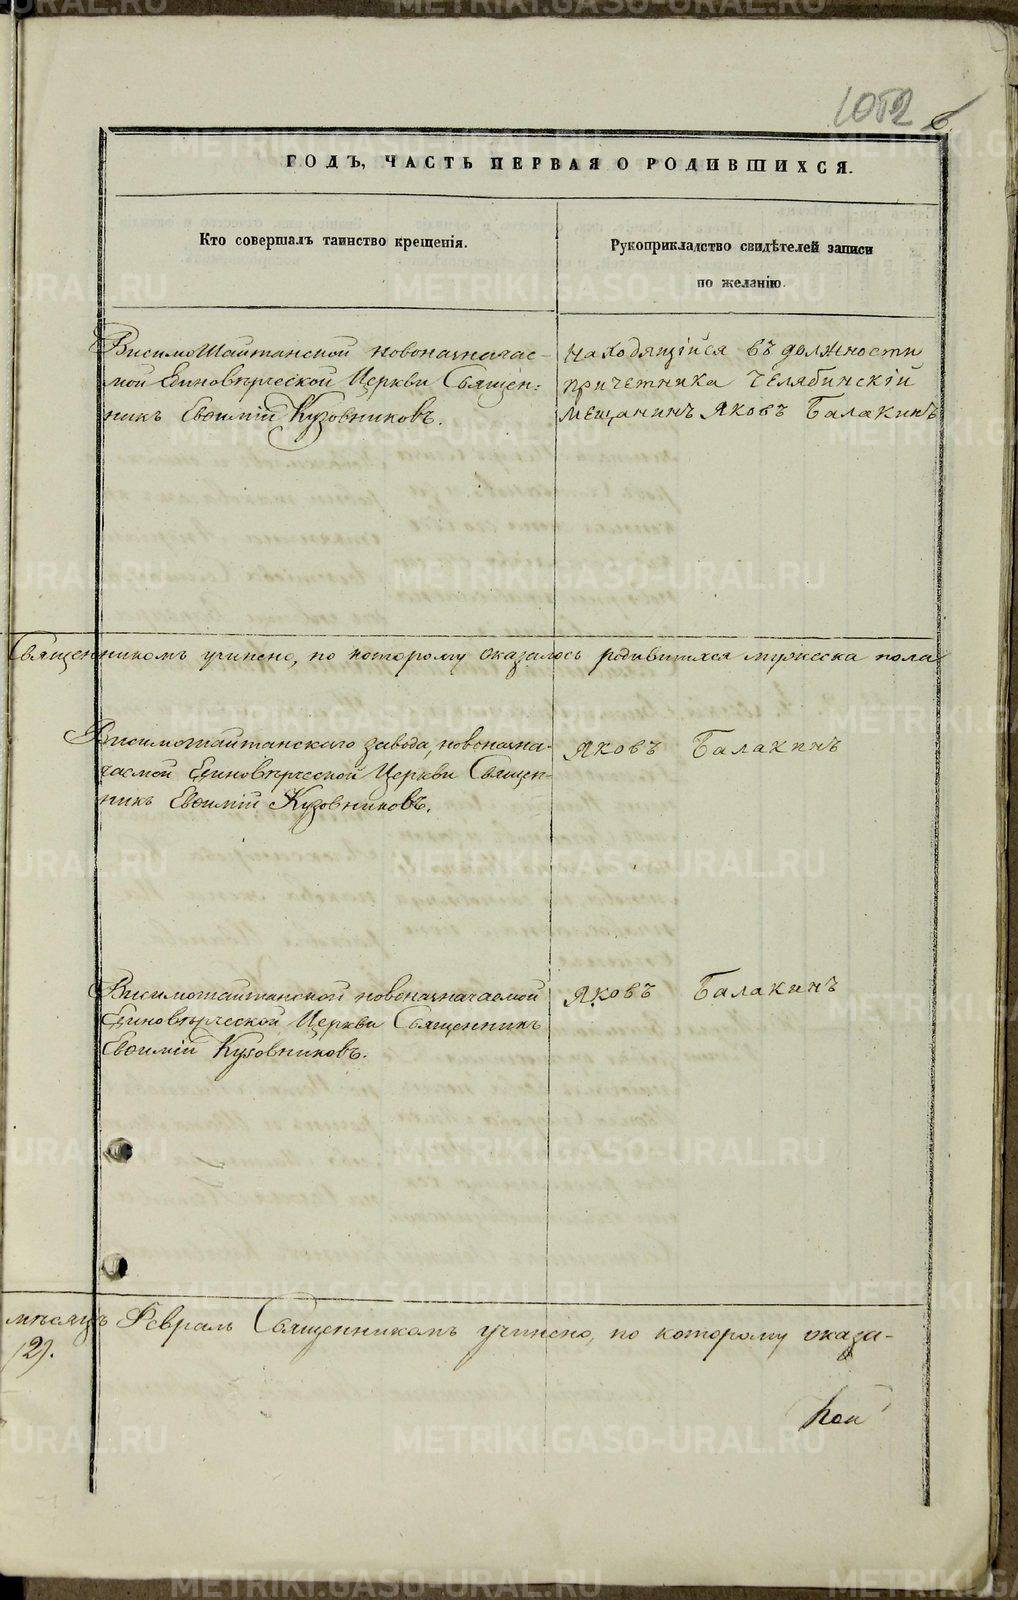 1052
6
ГОДЪ, ЧАСТЬ ПЕРВАЯ О РОДИВШИХСЯ.
Кто совершалъ таинство крещенія.
Рукоприкладство свидѣтелей записи
по желанію.
ВисимоШайтанской новоназначае-
мой Единовѣрческой Церкви Священ-
никъ Евѳимій Кузовниковъ.
Находящійся въ должности
причетника Челябинскій
мещанинъ Яковъ Балакинъ
Священникомъ учинено, по которому оказалось родившихся мужеска пола
Висимошайтанскаго завода, новоназна-
чаемой Единовѣрческой Церкви Священ-
никъ Евѳимій Кузовниковъ.
Яковъ Балакинъ
Висимошайтанской новоназначаемой
Единовѣрческой Церкви Священникъ
Евѳимій Кузовниковъ.
Яковъ Балакинъ
мѣсяцъ Февраль Священникомъ учинено, по которому оказа-
(2).
METRIKI.GASO-URAL.RU